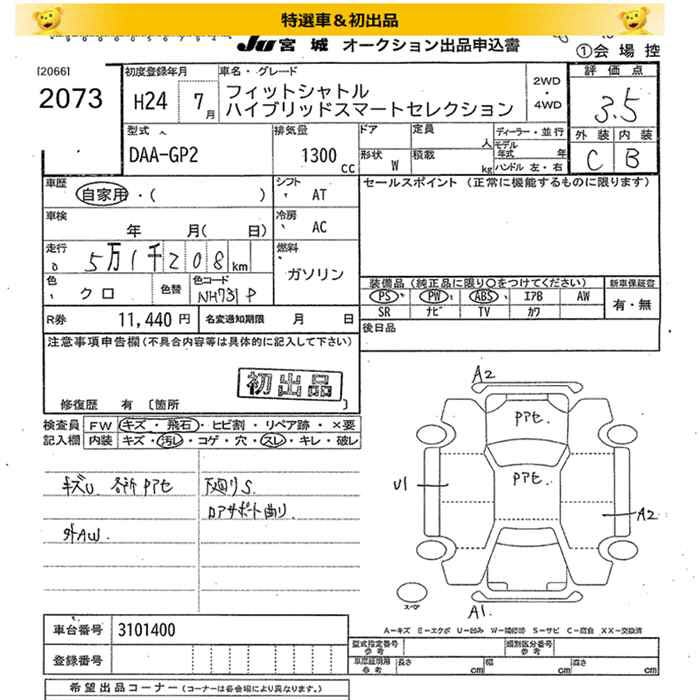 特選車&初出品
JU 宮城 オークション出品申込書
①会場控
[2066]
2073
初度登録年月
H24 7月
車名・グレード
フィットシャトル
ハイブリッドスマートセレクション
2WD
・
4WD
評価点
3.5
外装 内装
C B
型式
DAA-GP2
排気量
1300 cc
ドア 定員 人
形状 W 積載 kg
ディーラー・並行
モデル年式 年
ハンドル 左・右
車歴 自家用・( )
シフト AT
車検 年 月( 日)
冷房 AC
走行 5万1千208km
燃料 ガソリン
色 クロ 色替 色コード NH731P
R券 11,440円 名変通知期限 月 日
セールスポイント (正常に機能するものに限ります)
装備品(純正品に限り○をつけてください)
新車保証書
PS PW ABS エアB AW
有・無
SR ナビ TV カワ
後日品
注意事項申告欄(不具合内容等は具体的に記入して下さい)
初出品
修復歴 有 〔箇所
検査員記入欄
FW キズ・飛石・ヒビ割・リペア跡・×要
内装 キズ・汚レ・コゲ・穴・スレ・キレ・破レ
キズU 各所Pアセ 下廻りS.
ロアサポート曲り.
外AW
A2
Pアセ
Pアセ
U1
A2
A1
スペア
A-キズ E-エクボ U-凹み W-補修跡 S-サビ C-腐食 XX-交換済
車台番号 3101400
登録番号
型式指定番号 参考
類別区分番号 参考
車庫証明用 参考 長さ cm 幅 cm 高さ cm
希望出品コーナー(コーナーは各会場により異なります。)